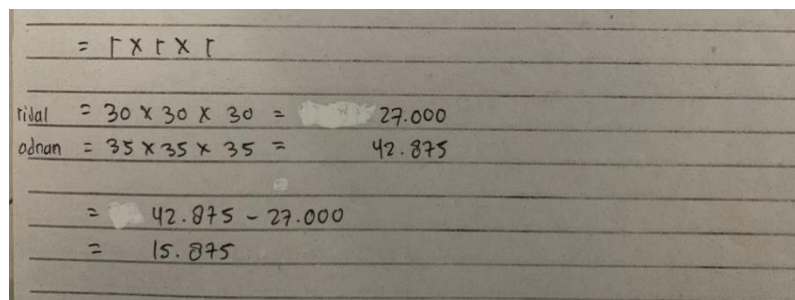 = r x r x r
ridal = 30 x 30 x 30 = 27.000
adnan = 35 x 35 x 35 = 42.875
= 42.875 - 27.000
= 15.875